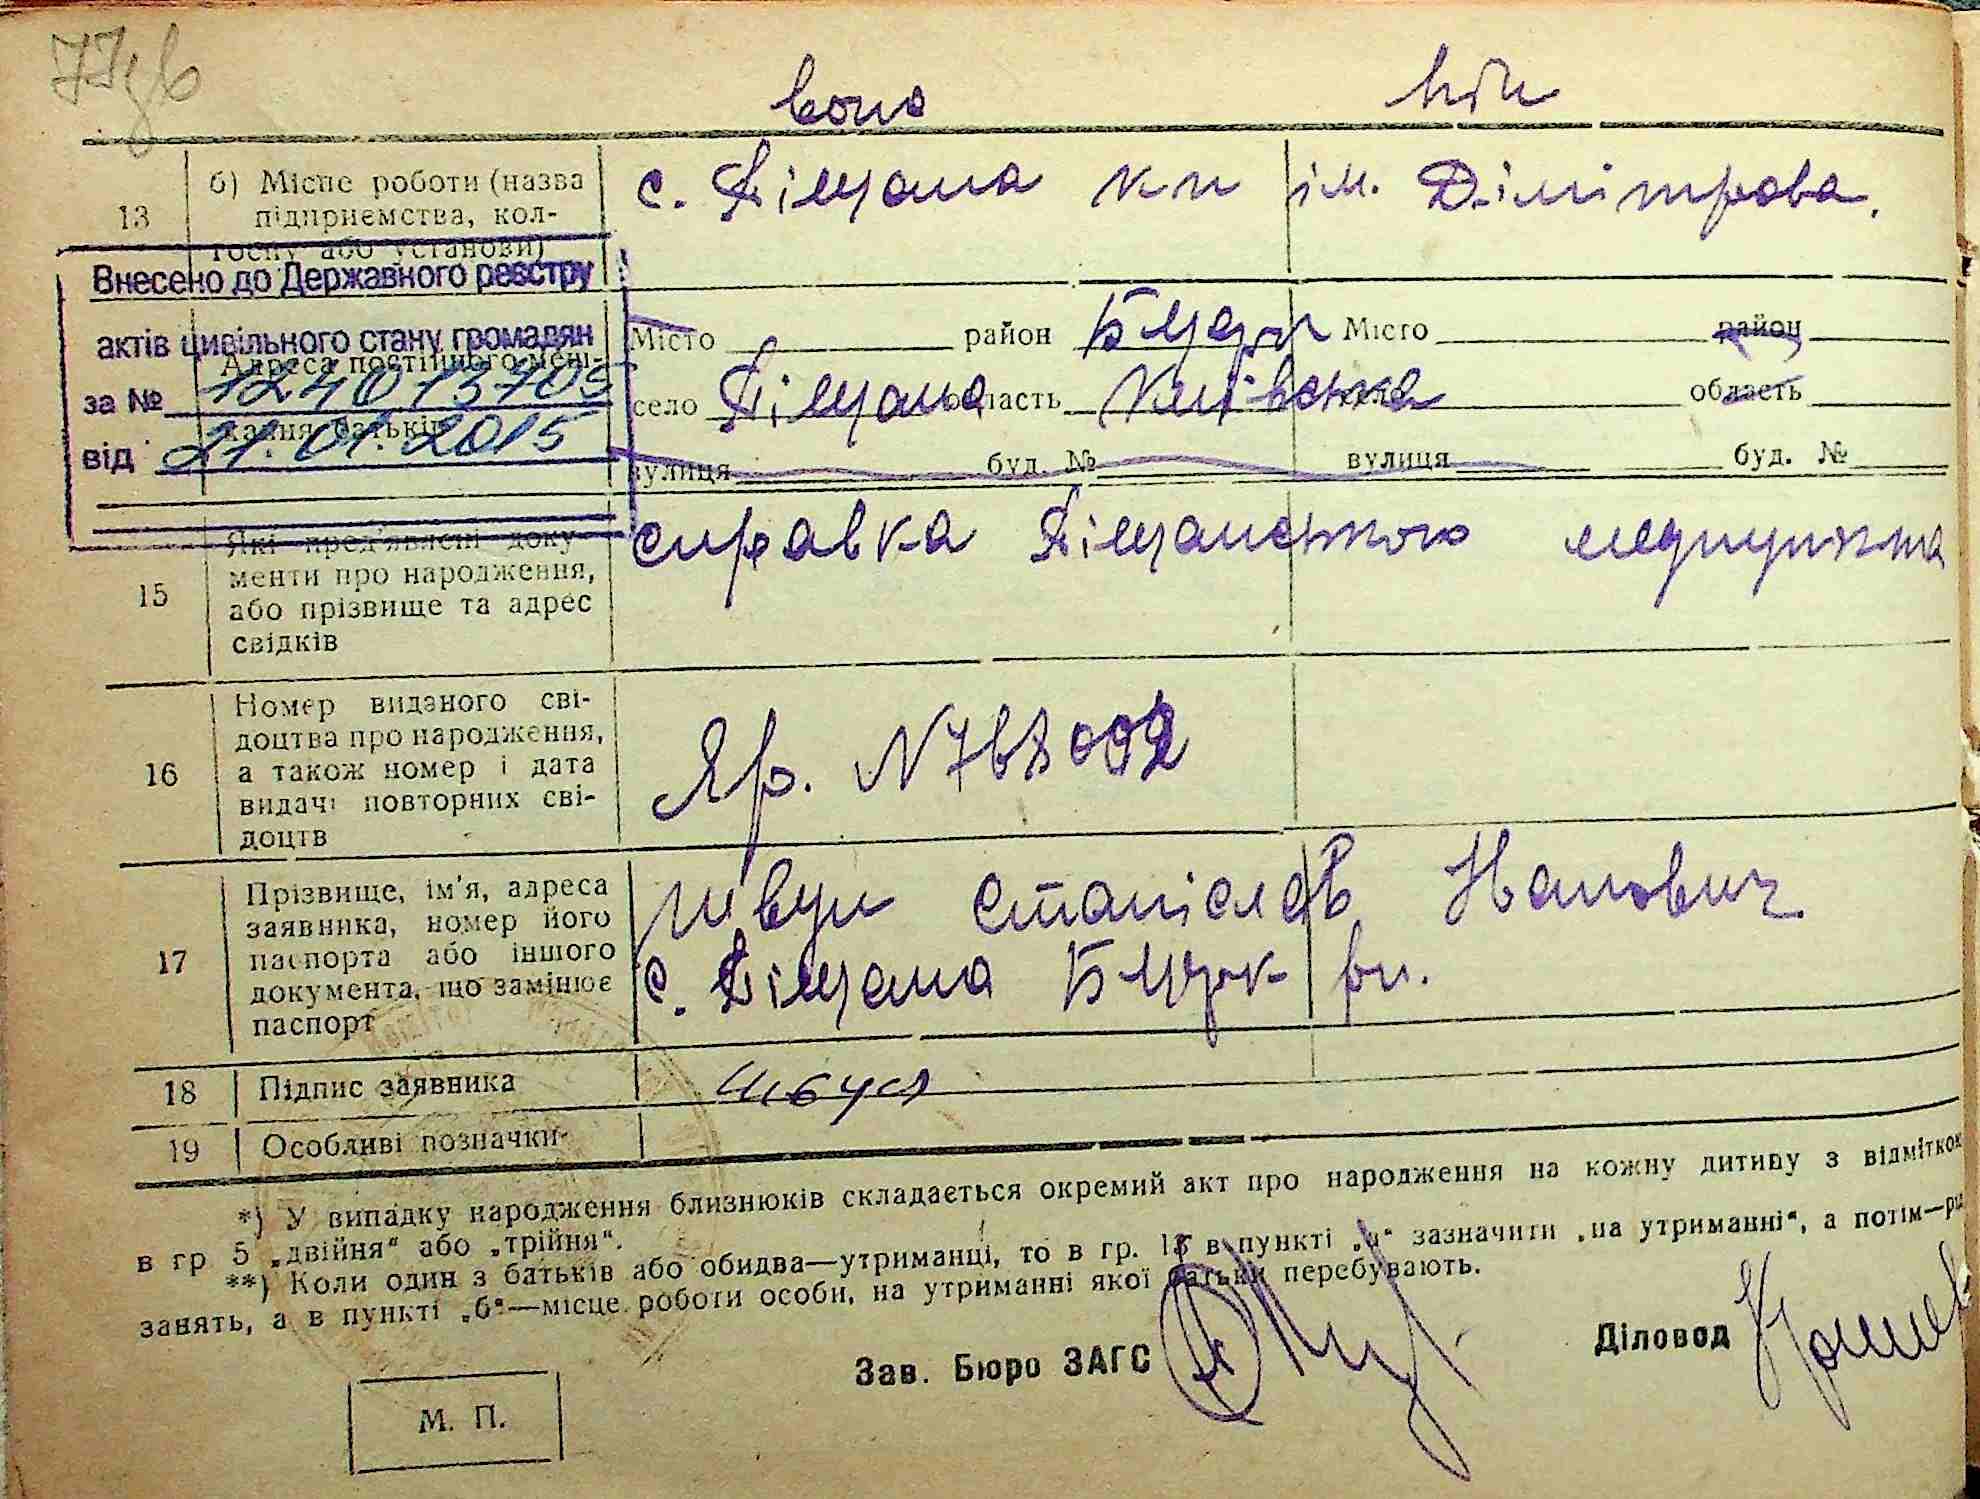 77зв
вона він
13 б) Місце роботи (назва підприємства, колгоспу або установи)
с. Піщана кп ім. Дімітрова.
Внесено до Державного реєстру
актів цивільного стану громадян
за №
від 21.01.2015
Адреса постійного мешкання батьків
Місто район Місто район
село Піщана область Київська область
вулиця буд. № вулиця буд. №
15 Які пред'явлені документи про народження, або прізвище та адрес свідків
справка Піщанського медпункта
16 Номер виданого сві-
доцтва про народження,
а також номер і дата
видачі повторних сві-
доцтв
Яр. N
17 Прізвище, ім'я, адреса
заявника, номер його
паспорта або іншого
документа, що замінює
паспорт
Станіслав Іванович
с. Піщана
18 Підпис заявника
19 Особливі позначки
*) У випадку народження близнюків складається окремий акт про народження на кожну дитину з відміткою
в гр 5 „двійня“ або „трійня“.
**) Коли один з батьків або обидва—утриманці, то в гр. 13 в пункті „а“ зазначити „на утриманні“, а потім—рід
занять, а в пункті „б“—місце роботи особи, на утриманні якої батьки перебувають.
Зав. Бюро ЗАГС
Діловод
М. П.